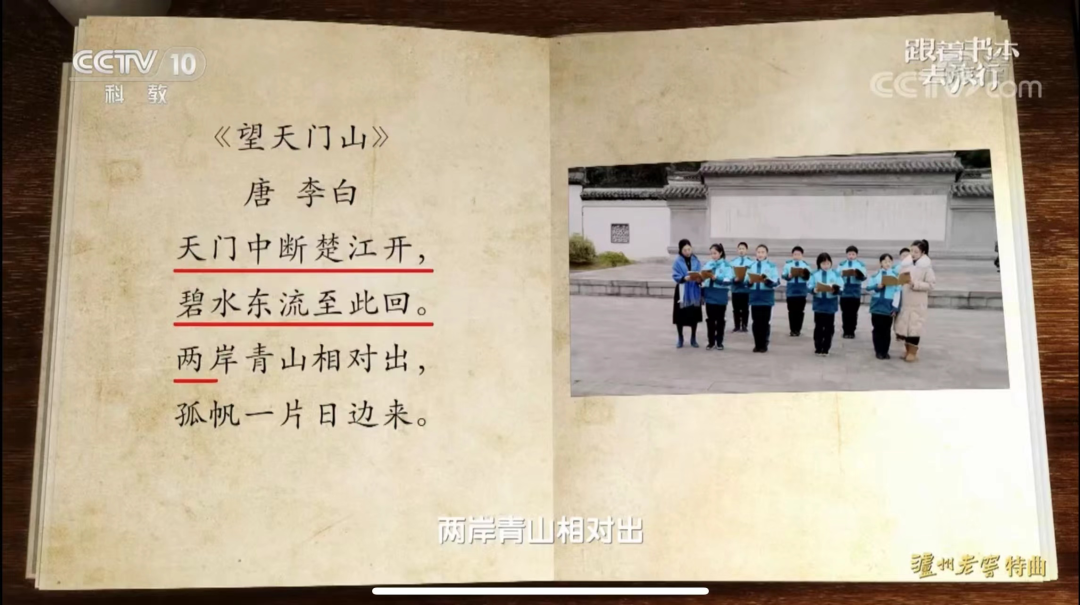 CCTV 10
科教
跟着书本
去旅行
CCTV.com
《望天门山》
唐 李白
天门中断楚江开，
碧水东流至此回。
两岸青山相对出，
孤帆一片日边来。
两岸青山相对出
泸州老窖特曲